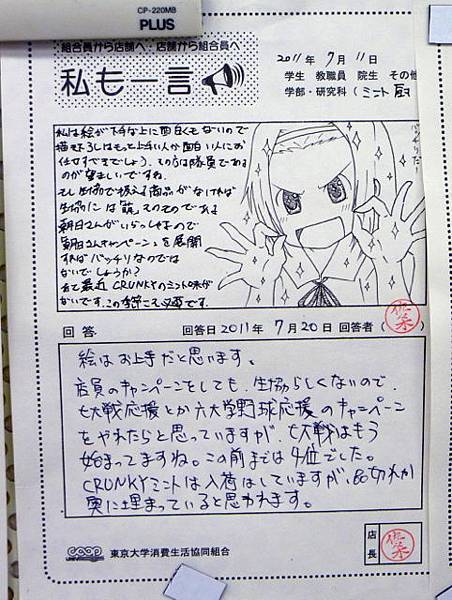 CP-220MB
PLUS
組合員から店舗へ・店舗から組合員へ
私も一言
2011年 7月 11日
学生 教職員 院生 その他
学部・研究科 (ミント 厨
私は絵が下手な上に面白くもないので
描き下ろしはもっと上手い人か面白い人にお
任せすべきでしょう。その方は隊員である
のが望ましいですね。
そし生協で扱える商品がなければ
生協には「萌」そのものである
朝日さんがいらっしゃるので
「朝日さんキャンペーン」を展開
すればバッチリなのでは
ないでしょうか?
さて最近CRUNKYのミント味が
ないです。この季節こそ必要です。
バッチリだー
回答
回答日 2011年 7月20日 回答者 (
絵はお上手だと思います。
店員のキャンペーンをしても、生協らしくないので、
七大戦応援とか六大学野球応援のキャンペーン
をやれたらと思っていますが、七大戦はもう
始まってますね。この前までは4位でした。
CRUNKYミントは入荷はしていますが、品切れか
奥に埋まっていると思われます。
店長
coop 東京大学消費生活協同組合